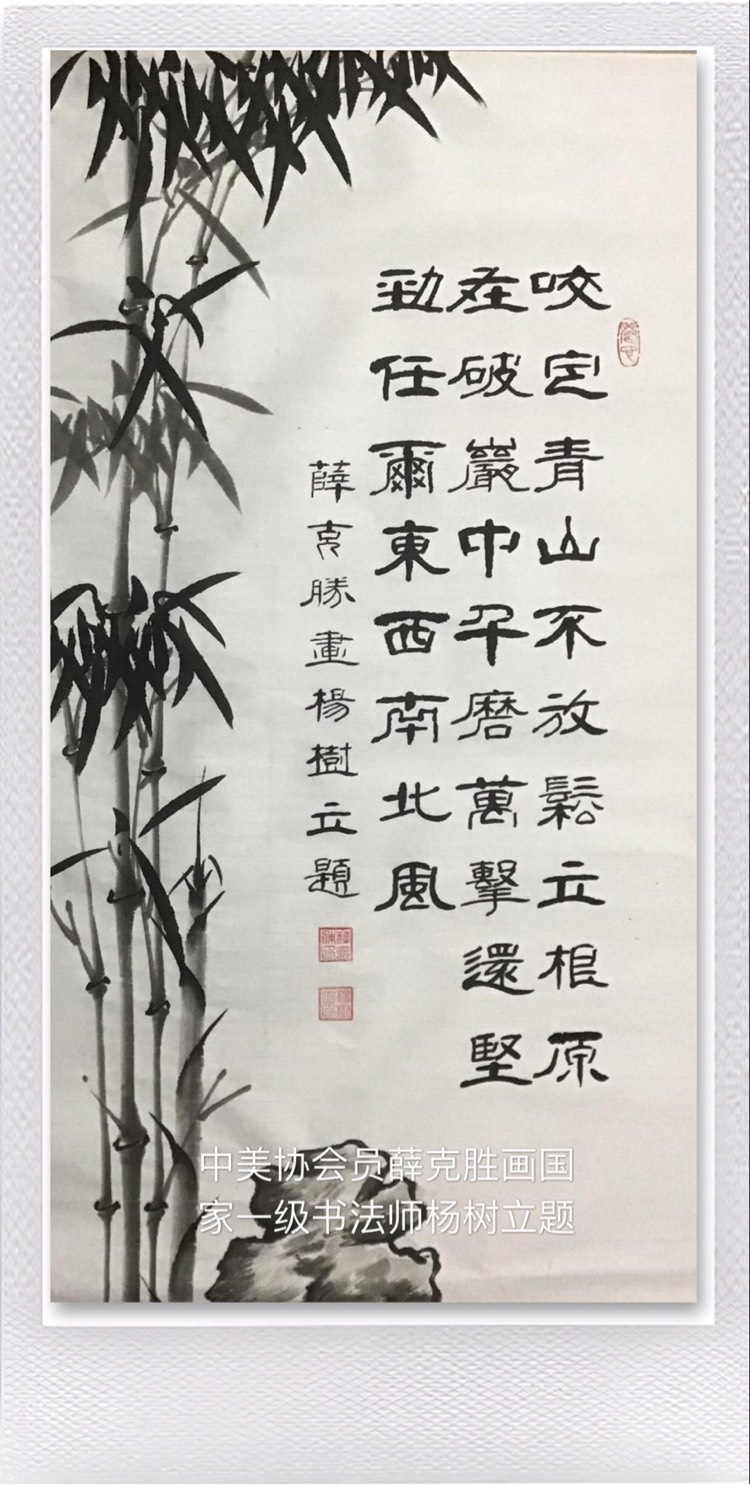 咬定青山不放鬆立根原
在破巖中千磨萬擊還堅
勁任爾東西南北風
薛克勝畫楊樹立題
中美协会员薛克胜画国
家一级书法师杨树立题